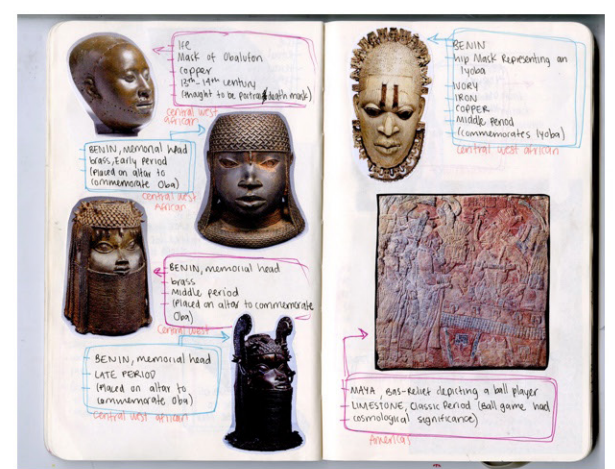 Ife
Mask of Obalufon
copper
13th-14th century
(thought to be portrait/death mask)
Central west
african
BENIN, memorial head
brass, Early Period
(Placed on altar to
commemorate Oba)
Central west
African
BENIN, memorial head
brass
Middle period
(Placed on altar to commemorate
Oba)
Central west
BENIN, memorial head
LATE PERIOD
(Placed on altar to
commemorate Oba)
Central west african
BENIN
Hip Mask Representing an
Iyoba
IVORY
IRON
COPPER
Middle Period
(commemorates Iyoba)
Central west african
MAYA, Bas-Relief depicting a ball player
LIMESTONE, Classic Period (Ball game had
cosmological significance)
Americas